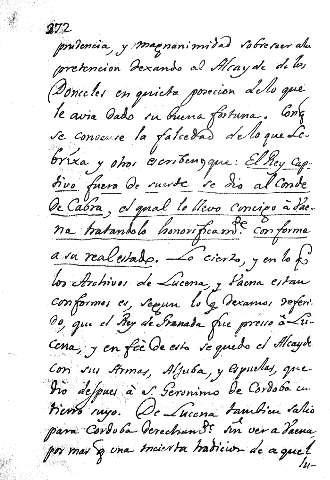 272
prudencia, y magnanimidad sobreseer a la
pretencion dexando al Alcayde de los
Donceles en quieta posecion de lo que
le avia dado su buena fortuna. Conq
se convence la falcedad de lo que Le-
brixa y otros escriben, que: El Rey Cap-
tivo fuera de suerte se dio al Conde
de Cabra, el qual lo llevo consigo à Vae-
na tratandolo honorificamte conforme
a su real estado. Lo cierto, y en lo q
los Archivos de Lucena, y Vaena estan
conformes es, segun lo q dexamos referi-
do, que el Rey de Granada fue presso à Lu-
cena, y en feè de esto se quedo el Alcayde
con sus Armas, Aljuba, y espuelas, que
dio despues à Sn Geronimo de Cordoba en-
tierro suyo. De Lucena tambien salio
para Cordoba derechamte sin ver a Vaena
por mas q una incierta tradicion de aquel